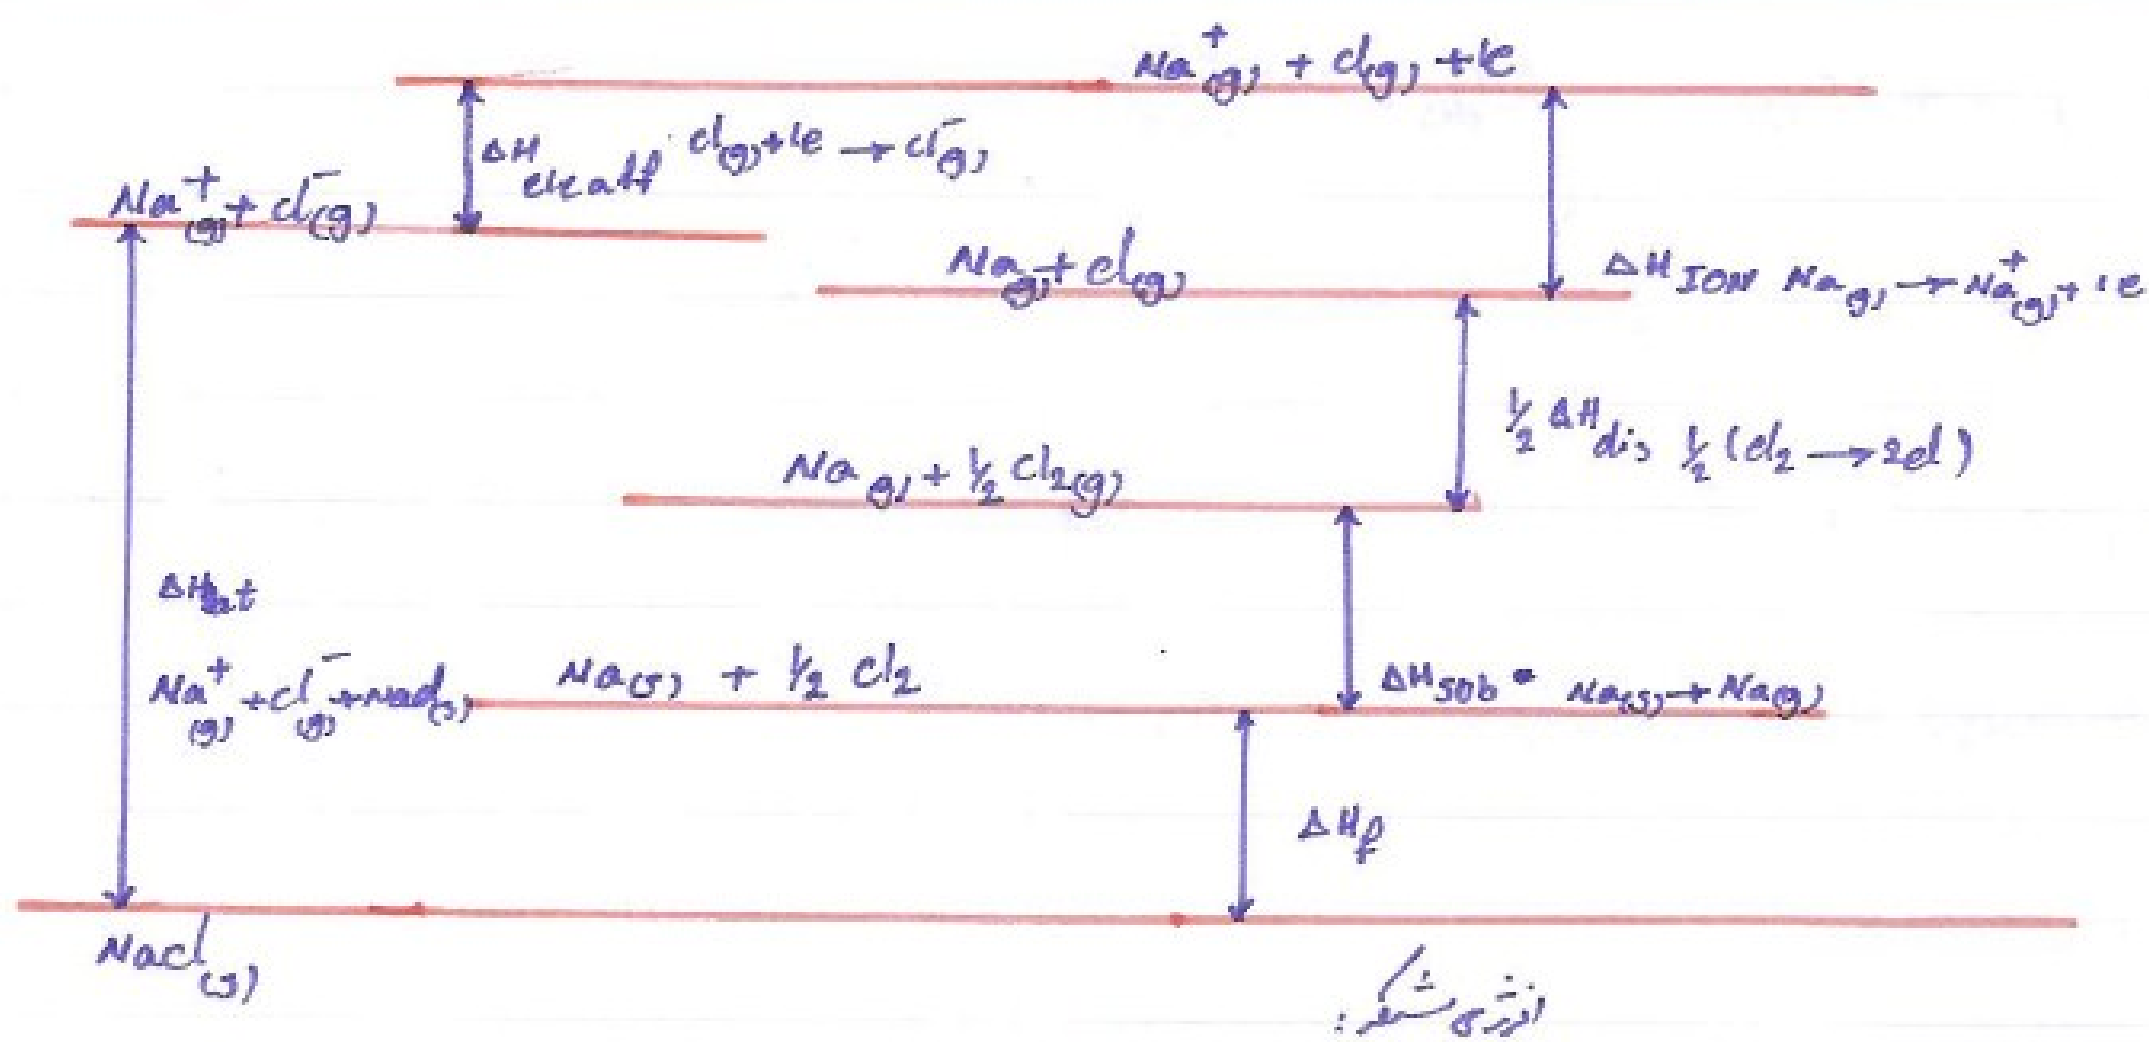 Na⁺(g) + Cl(g) + 1e
ΔH ele aff Cl(g) + 1e → Cl⁻(g)
Na⁺(g) + Cl⁻(g)
Na(g) + Cl(g)
ΔH ION Na(g) → Na⁺(g) + 1e
½ ΔH dis ½ (Cl₂ → 2Cl)
Na(g) + ½ Cl₂(g)
ΔH Lat
Na⁺(g) + Cl⁻(g) → NaCl(s)
Na(s) + ½ Cl₂
ΔH sob Na(s) → Na(g)
ΔHf
NaCl(s)
انرژی شبکه :